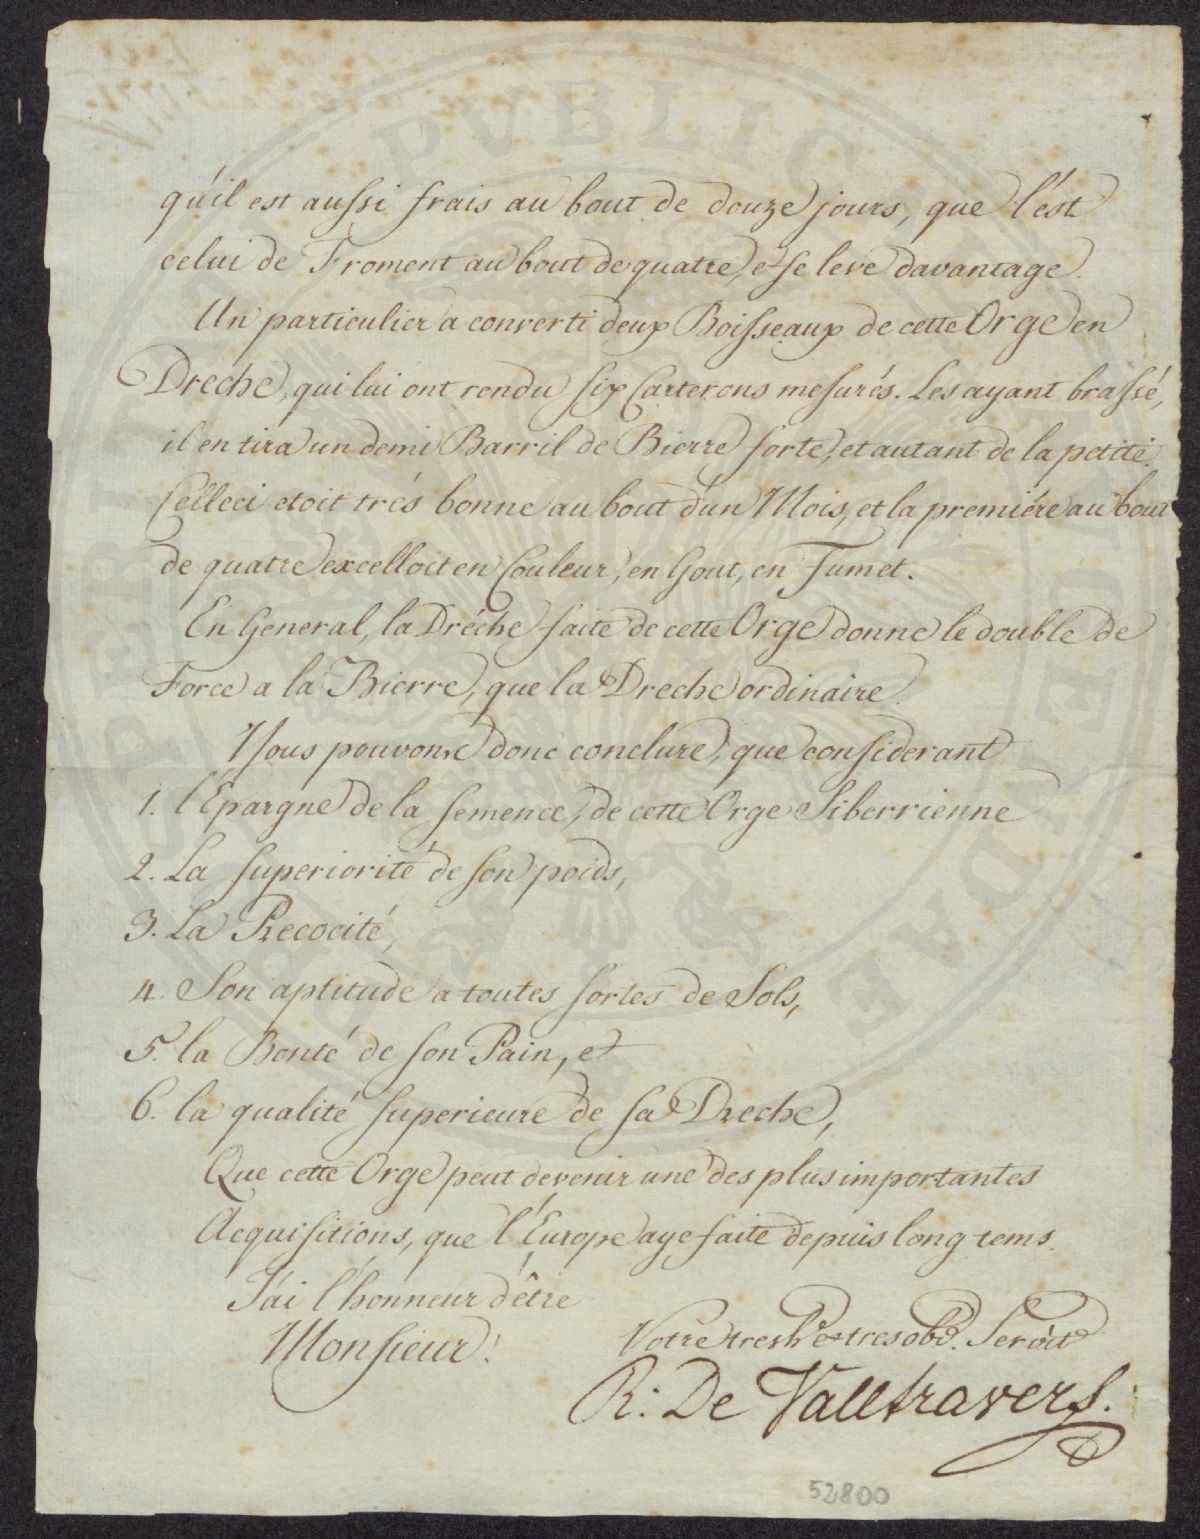 qu'il est aussi frais au bout de douze jours, que l'est
celui de Froment au bout de quatre, et se leve davantage.
Un particulier a converti deux Boisseaux de cette Orge en
Dreche, qui lui ont rendu six Carterons mesurés. Les ayant brassé,
il en tira un demi Barril de Bierre forte, et autant de la petite.
Celleci etoit trés bonne au bout d'un Mois, et la premiére au bout
de quatre excelloit en Couleur, en Gout, en Fumet.
En General, la Dréche faite de cette Orge donne le double de
Force a la Bierre, que la Dreche ordinaire.
Nous pouvons donc conclure, que considerant
1. l'Epargne de la semence, de cette Orge Siberrienne
2. La superiorité de son poids,
3. La Precocité,
4. Son aptitude a toutes sortes de Sols,
5. la Bonté de son Pain, et
6. la qualité superieure de sa Dreche,
Que cette Orge peut devenir une des plus importantes
Acquisitions, que l'Europe aye faite depuis long tems.
J'ai l'honneur d'être
Monsieur! Votre tres h^e et tres obt. Servit
R: De Valltravers.
52800
PVBLICA